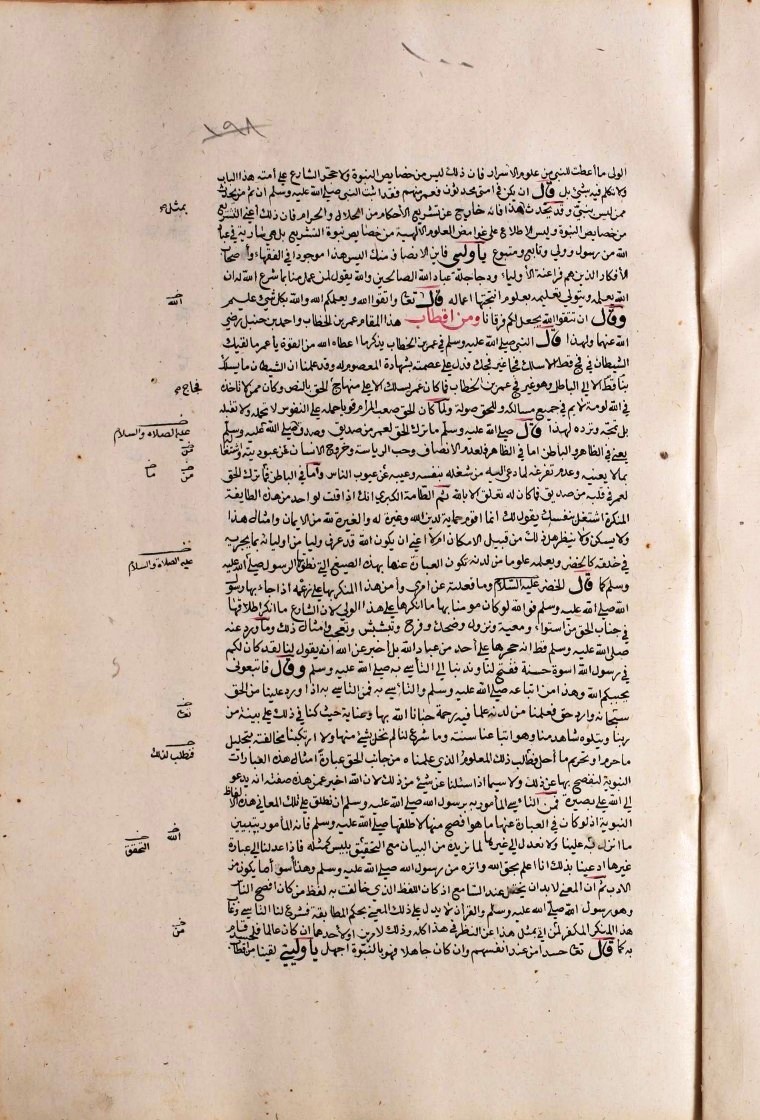 ١٠٠
١٩٨
الولى ما أعطت للنبى من علوم الاسرار فان ذلك ليس من خصايص النبوة ولا حجر الشارع على أمته هذا الباب
ولا تكلم فيه بشئ بل قال ان يكن فى امتى محدثون فعمر منهم فقد اثبت النبى صلى الله عليه وسلم ان ثم من يحدث
ممن ليس بنبى وقد يحدث بمثل هذا فانه خارج عن تشريع الأحكام من الحلال والحرام فان ذلك أعنى التشريع
من خصايص النبوة وليس الاطلاع على غوامض العلوم الالهية من خصايص نبوة التشريع بل هى سارية فى عباد
الله من رسول وولى وتابع ومتبوع يا ولى فاين الانصاف منك اليس هذا موجودا فى الفقهاء واصحاب
الأفكار الذين هم فراعنة الأولياء ودجاجلة عباد الله الصالحين والله يقول لمن عمل منا بما شرع الله له ان
الله يعلمه ويتولى تعليمه بعلوم انتجتها اعماله قال تعا واتقوا الله ويعلمكم الله والله بكل شئ عليم
وقال ان تتقوا الله يجعل لكم فرقانا ومن أقطاب هذا المقام عمر بن الخطاب واحمد بن حنبل رضى
الله عنهما ولهذا قال النبى صلى الله عليه وسلم فى عمر بن الخطاب يذكر ما اعطاه الله من القوة يا عمر ما لقيك
الشيطان فى فج قط الا سلك فجا غير فجك فدل على عصمته بشهادة المعصوم له وقد علمنا ان الشيطان ما يسلك
بنا قط الا الى الباطل وهو غير فج عمر بن الخطاب فما كان عمر يسلك الا على منهاج الحق بالنص وكان ممن لا تأخذه
فى الله لومة لائم فى جميع مسالكه وللحق صولة ولما كان الحق صعب المرام قويا حمله على النفوس لا تحمله ولا تقبله
بل تمجه وترده لهذا قال صلى الله عليه وسلم ما ترك الحق لعمر من صديق وصدق صلى الله عليه وسلم
يعنى فى الظاهر والباطن اما فى الظاهر فلعدم الانصاف وحب الرياسة وخروج الانسان عن عبوديته واشتغاله
بما لا يعنيه وعدم تفرغه لما دعى اليه من شغله بنفسه وعيبه عن عيوب الناس وأما فى الباطن فما ترك الحق
لعمر فى قلبه من صديق فما كان له تعلق الا بالله ثم الطامة الكبرى انك اذا قلت لواحد من هذه الطايفة
المنكرة اشتغل بنفسك يقول لك انما اقوم حماية لدين الله وغيرة له والغيرة لله من الايمان وامثال هذا
ولا يسكن ولا ينظر هل ذلك من قبيل الامكان ام لا اعنى ان يكون الله قد عرف وليا من اوليائه بما يجريه
فى خلقه كالخضر ويعلمه علوما من لدنه تكون العبارة عنها بهذه الصيغ التى نطق بها الرسول صلى الله عليه
وسلم كما قال الخضر عليه السلام وما فعلته عن امرى وآمن هذا المنكر بها على زعمه اذا جاء بها رسول
الله صلى الله عليه وسلم فوالله لو كان مومنا بها ما انكرها على هذا الولى لان الشارع ما انكر اطلاقها
فى جناب الحق من استواء ومعية ونزول وضحك وفرح وتبشبش وتعجب وامثال ذلك وما ورد عنه
صلى الله عليه وسلم قط انه حجرها على أحد من عباد الله بل اخبر عن الله انه يقول لنا لقد كان لكم
فى رسول الله اسوة حسنة ففتح لنا وندبنا الى التأسى به صلى الله عليه وسلم وقال فاتبعونى
يحببكم الله وهذا من اتباعه صلى الله عليه وسلم والتأسى به فمن التأسى به اذا ورد علينا من الحق
سبحانه وارد حق فعلمنا من لدنه علما فيه رحمة حبانا الله بها وعناية حيث كنا فى ذلك على بينة من
ربنا ويتلوه شاهد منا وهو اتباعنا سنته وما شرع لنا لم نخل بشئ منها ولا ارتكبنا مخالفته بتحليل
ما حرم او تحريم ما أحل فطلب ذلك المعلوم الذى علمناه من جانب الحق عبارة أمثال هذه العبارات
النبوية لنفصح بها عن ذلك ولا سيما اذا سئلنا عن شئ من ذلك لان الله اخبر عمن هذه صفته انه يدعو
الى الله على بصيرة فمن التأسى المأمور به برسول الله صلى الله عليه وسلم ان نطلق على تلك المعانى هذه الألفاظ
النبوية اذ لو كان فى العبارة عنها ما هو افصح منها لاطلقها صلى الله عليه وسلم فانه المأمور بتبيين
ما انزل به علينا ولا نعدل الى غيرها لما نريده من البيان مع التحقيق بليس كمثله فاذا عدلنا الى عبارة
غيرها ادعينا بذلك انا اعلم بحق الله وانزه من رسول الله صلى الله عليه وسلم وهذا أسوأ ما يكون من
الادب ثم ان المعنى لا بد ان يختل عند السامع اذ كان اللفظ الذى خالفت به لفظ من كان افصح الناس
وهو رسول الله صلى الله عليه وسلم والقرآن لا يدل على ذلك المعنى بحكم المطابقة فشرع لنا التأسى وغاب
هذا المنكر المكفر لمن اتى بمثل هذا عن النظر فى هذا كله وذلك لامرين او لأحدهما ان كان عالما فلحسد قام
به كما قال تعا حسدا من عند انفسهم وان كان جاهلا فهو بالنبوة اجهل يا وليى لقينا من اقطاب
بمثل
الله
فجاع
عليه الصلاه والسلام
من
من
ما
عليه الصلاة والسلام
تعا
فطلب لذلك
الله
التحقق
من